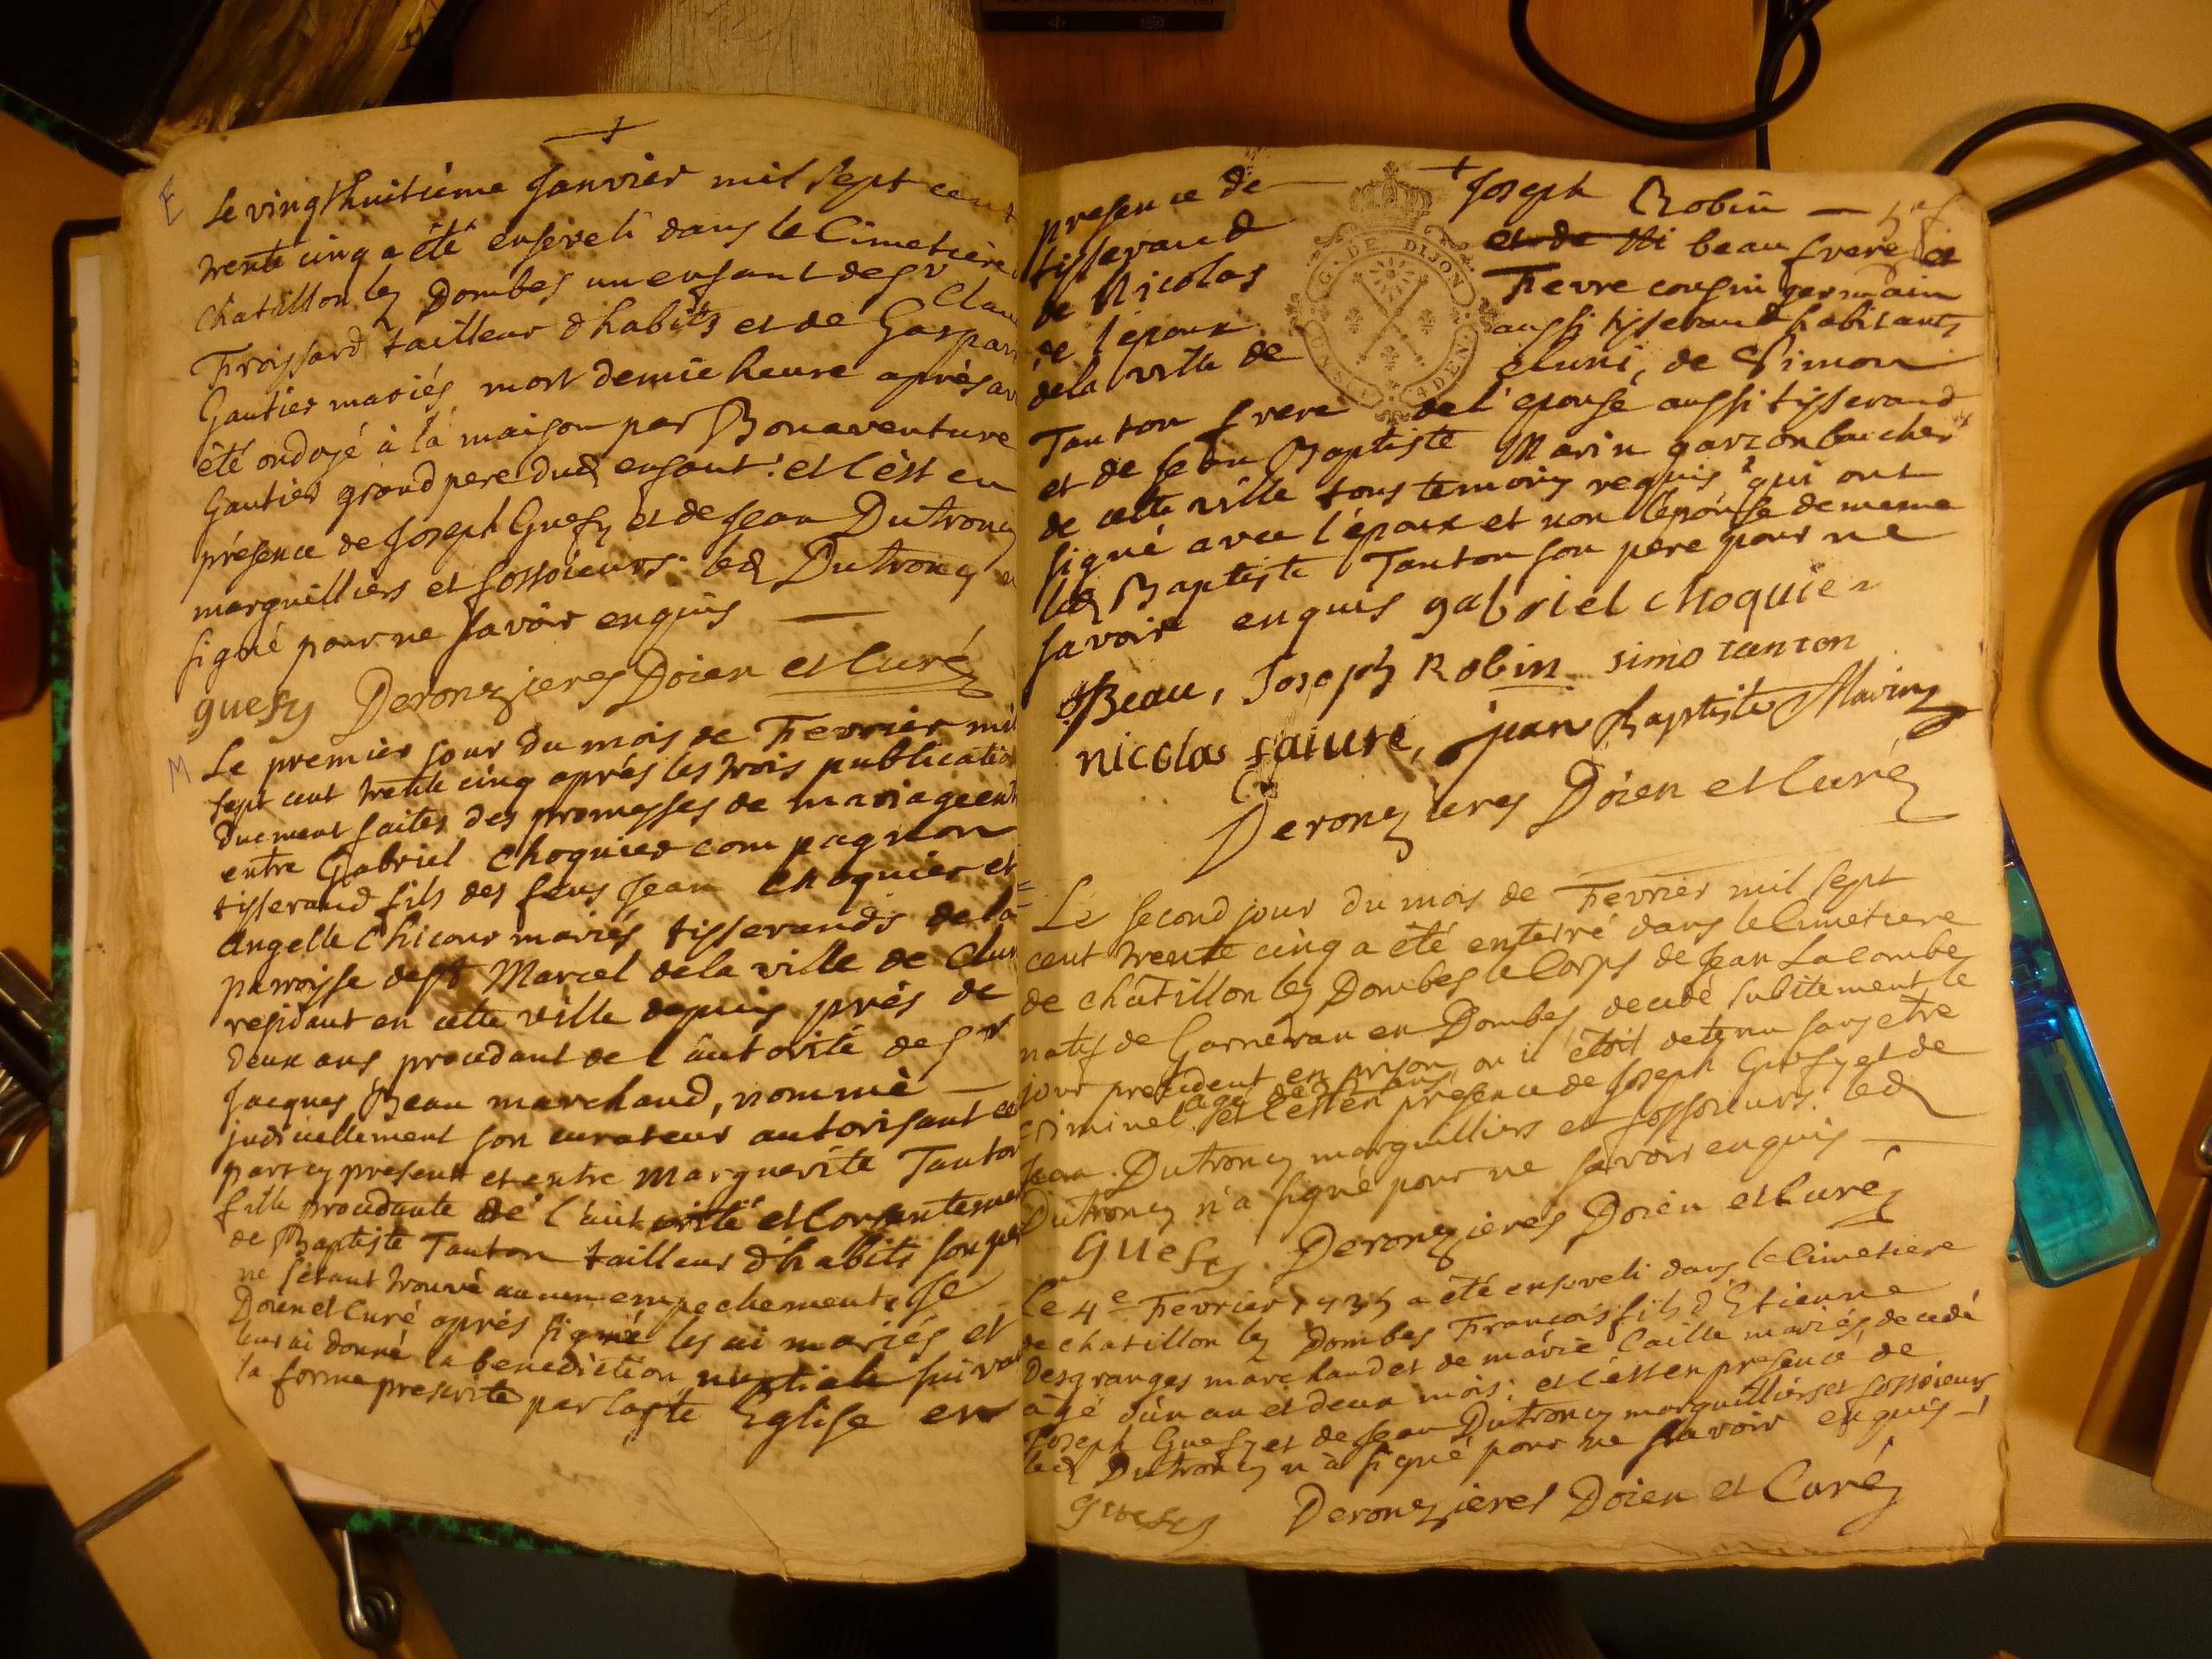 Le vingt huitiéme Janvier mil sept cent
trente cinq a été enseveli dans le Cimetière
Chatillon les Dombes un enfant de Sr Clau
Froissard tailleur d'habits et de Gaspar
Gautier mariés mort demie heure aprés av
été ondoyé à la maison par Bonaventure
Gautier grand pere dud enfant: et c'est en
présence de Joseph Guefy et de Jean Dutroncy
marguilliers et fossoieurs. led Dutroncy
signé pour ne savoir enquis
guefy Deronzieres Doien et Curé
M
Le premier jour du mois de Fevrier mil
sept cent trente cinq aprés les trois publicatio
duement faites des promesses de mariage
entre Gabriel Choquier compagnon
tisserand fils des feus Jean Choquier et
Angelle Chicour mariés tisserands de la
parroisse de St Marcel de la ville de Clu
residant en cette ville depuis prés de
deux ans, procedant de l'autorité de Sr
Jacques Beau marchand, nommé
judiciellement son curateur autorisant
part cy present et entre Marguerite Tanton
fille procedante de l'autorité et consenteme
de Baptiste Tanton tailleur d'habits son per
ne s'étant trouvé aucun empechement, je
Doien et Curé aprés signé les ai mariés et
leur ai donné la benediction nuptiale suiva
la forme prescrite par la Ste Eglise en
presence de Joseph Robin
tisserand et de beau frere et
de Nicolas Fievre cousin germain
de l'epoux aussi tisserand habitants
de la ville de Cluni, de Simon
G. DE DIJON
Tanton frere de l'epouse aussi tisserand
et de Jean Baptiste Marin garcon boucher
de cette ville tous temoins requis qui ont
signé avec l'époux et non l'epouse de meme
led Baptiste Tanton son pere pour ne
savoir enquis gabriel choquier
Beau, Joseph Robin simo tanton
nicolas faivre, jean Baptiste Marin
Deronzieres Doien et Curé
Le second jour du mois de Fevrier mil sept
cent trente cinq a été enterré dans le Cimetiere
de Châtillon les Dombes le Corps de Jean Lacombe
natif de Garneran en Dombes, decedé subitement le
jour precedent en prison, ou il étoit detenu sans etre
criminel. et c'est en presence de Joseph Guefy et de
Jean Dutroncy marguilliers et fossoieurs. led
Dutroncy n'a signé pour ne savoir enquis
Guefy Deronzieres Doien et Curé
Le 4e Fevrier 1735 a été enseveli dans le Cimetiere
de Chatillon les Dombes François fils d'Etienne
Desgranges marchand et de marie Caille mariés, decedé
âgé d'un an et deux mois: et c'est en presence de
Joseph Guefy et de Jean Dutroncy marguilliers et fossoieurs
led Dutroncy n'a signé pour ne savoir enquis
Guefy Deronzieres Doien et Curé